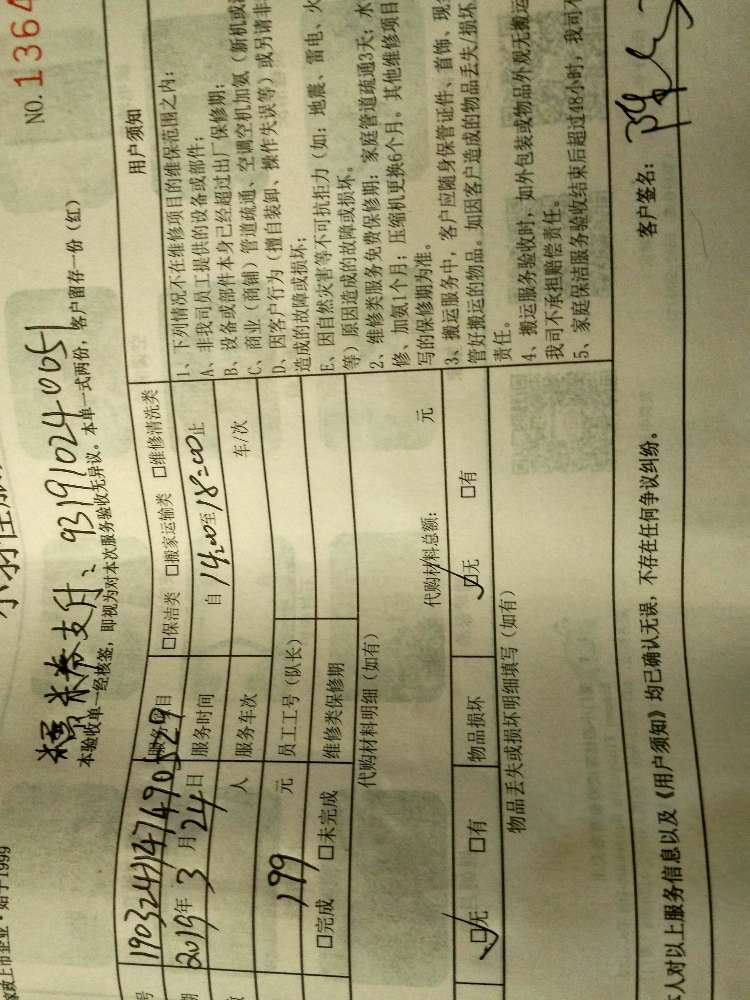 家政上市企业·始于1999
NO.1364
支付、9319102400651
本验收单一经核签，即视为对本次服务验收无异议。本单一式两份，客户留存一份（红）
号 服务项目 □保洁类 □搬家运输类 □维修清洗类
2019年3月24日 服务时间 自14:00至18:00止
人 服务车次 车/次
199元 员工工号（队长）
□完成 □未完成 维修类保修期
代购材料明细（如有）
代购材料总额： 元
☑无 □有 物品损坏 ☑无 □有
物品丢失或损坏明细填写（如有）
用户须知
1、下列情况不在维修项目的维保范围之内：
A、非我司员工提供的设备或部件；
B、设备或部件本身已经超过出厂保修期；
C、商业（商铺）管道疏通、空调空机加氨（新机或
D、因客户行为（擅自装卸、操作失误等）或另请非
造成的故障或损坏；
E、因自然灾害等不可抗拒力（如：地震、雷电、火
等）原因造成的故障或损坏。
2、维修类服务免费保修期：家庭管道疏通3天；水
修、加氨1个月；压缩机更换6个月。其他维修项目
写的保修期为准。
3、搬运服务中，客户应随身保管证件、首饰、现
管好搬运的物品。如因客户造成的物品丢失/损坏
责任。
4、搬运服务验收时，如外包装或物品外观无搬运
我司不承担赔偿责任。
5、家庭保洁服务验收结束后超过48小时，我司不
人对以上服务信息以及《用户须知》均已确认无误，不存在任何争议纠纷。
客户签名：